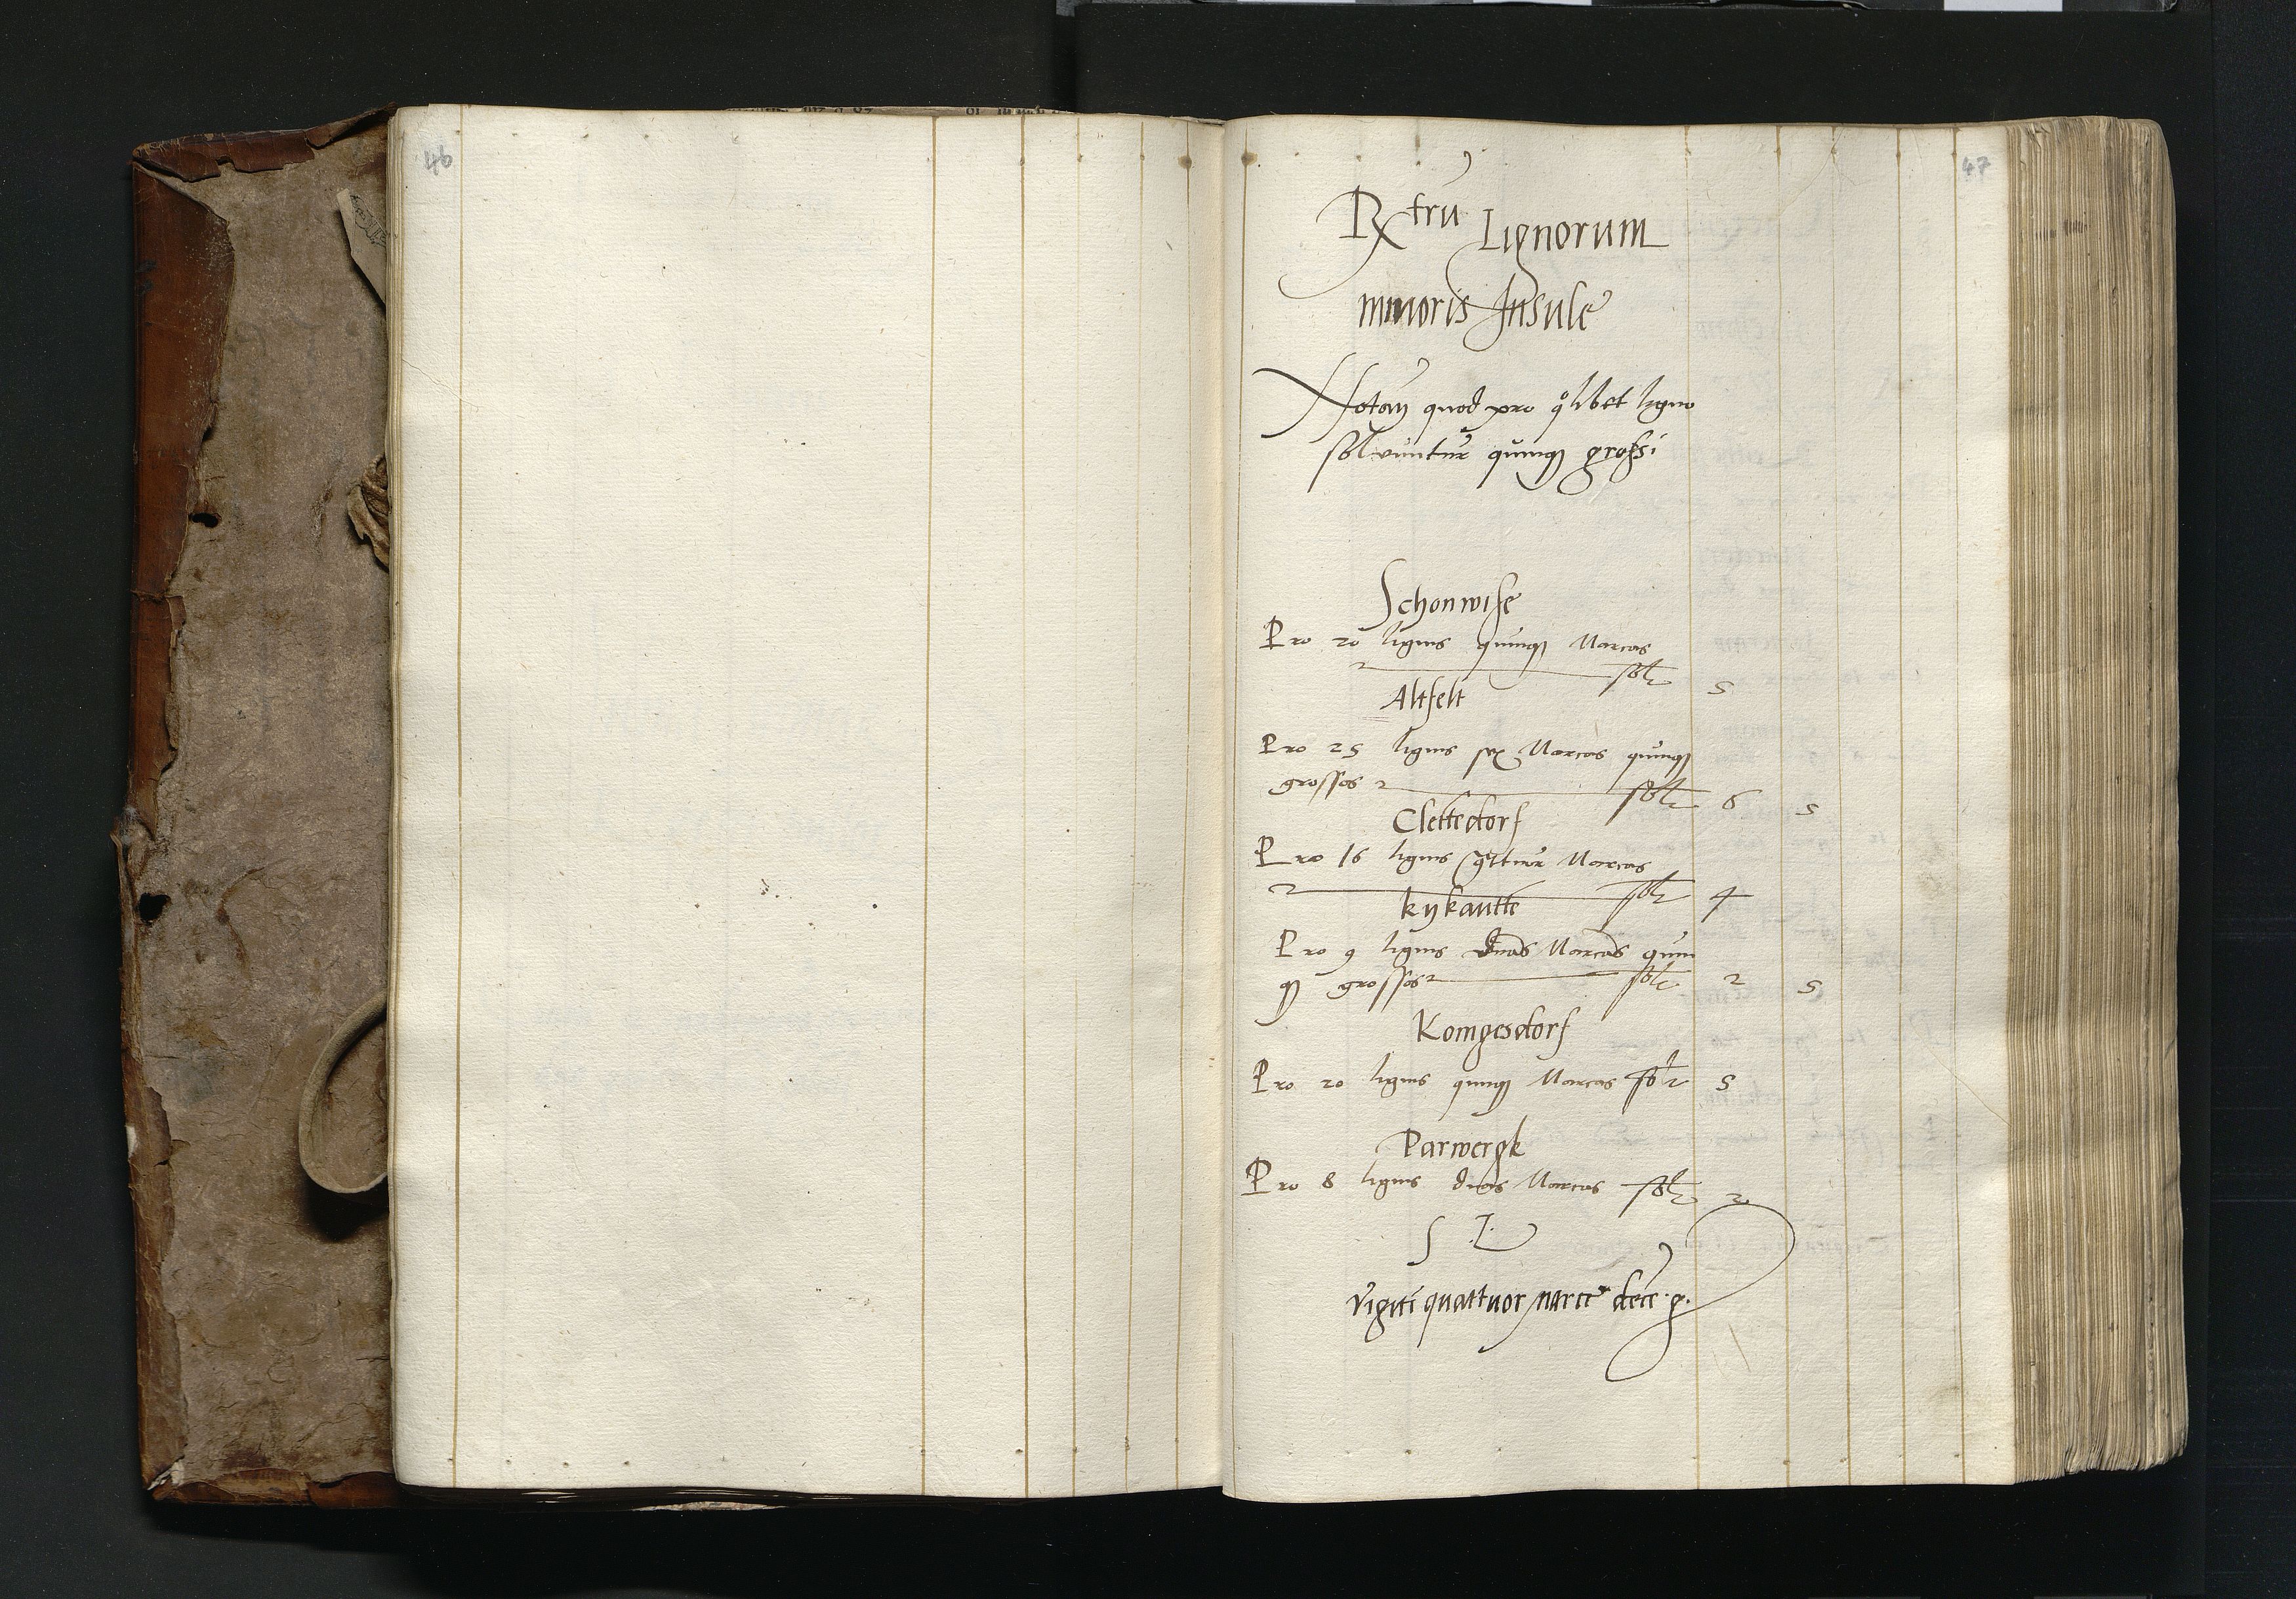 46
47
Rtrũ Lignorum
minoris Insule
Notan̄ quod pro qͦlibet ligno
soluuntur quinqꝫ grossi
Schonwise
Pro 20 lignis quinqꝫ Marcas
solt 5
Altfelt
Pro 25 lignis sex Marcas quinqꝫ
grossos solt 6 5
Clettedorf
Pro 16 lignis Marcas
solt 4
kykautte
Pro 9 lignis duas Marcas quin
qꝫ grossos solt 2 5
Konigesdorf
Pro 20 lignis quinqꝫ Marcas solt 5
Parwergk
Pro 8 lignis duas Marcas solt 2
S L
vigīti quattuor marce decē g.